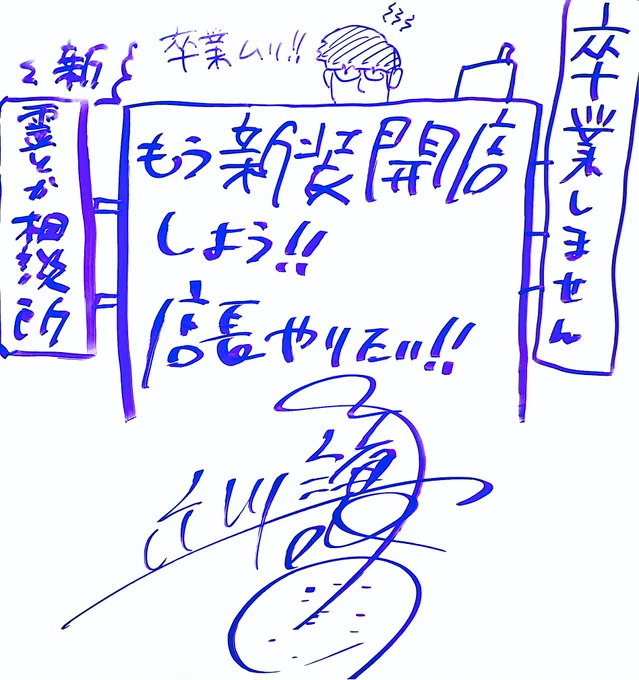 卒業ムリ!!
新
霊とか相談所
もう新装開店
しよう!!
店長やりたい!!
卒業しません